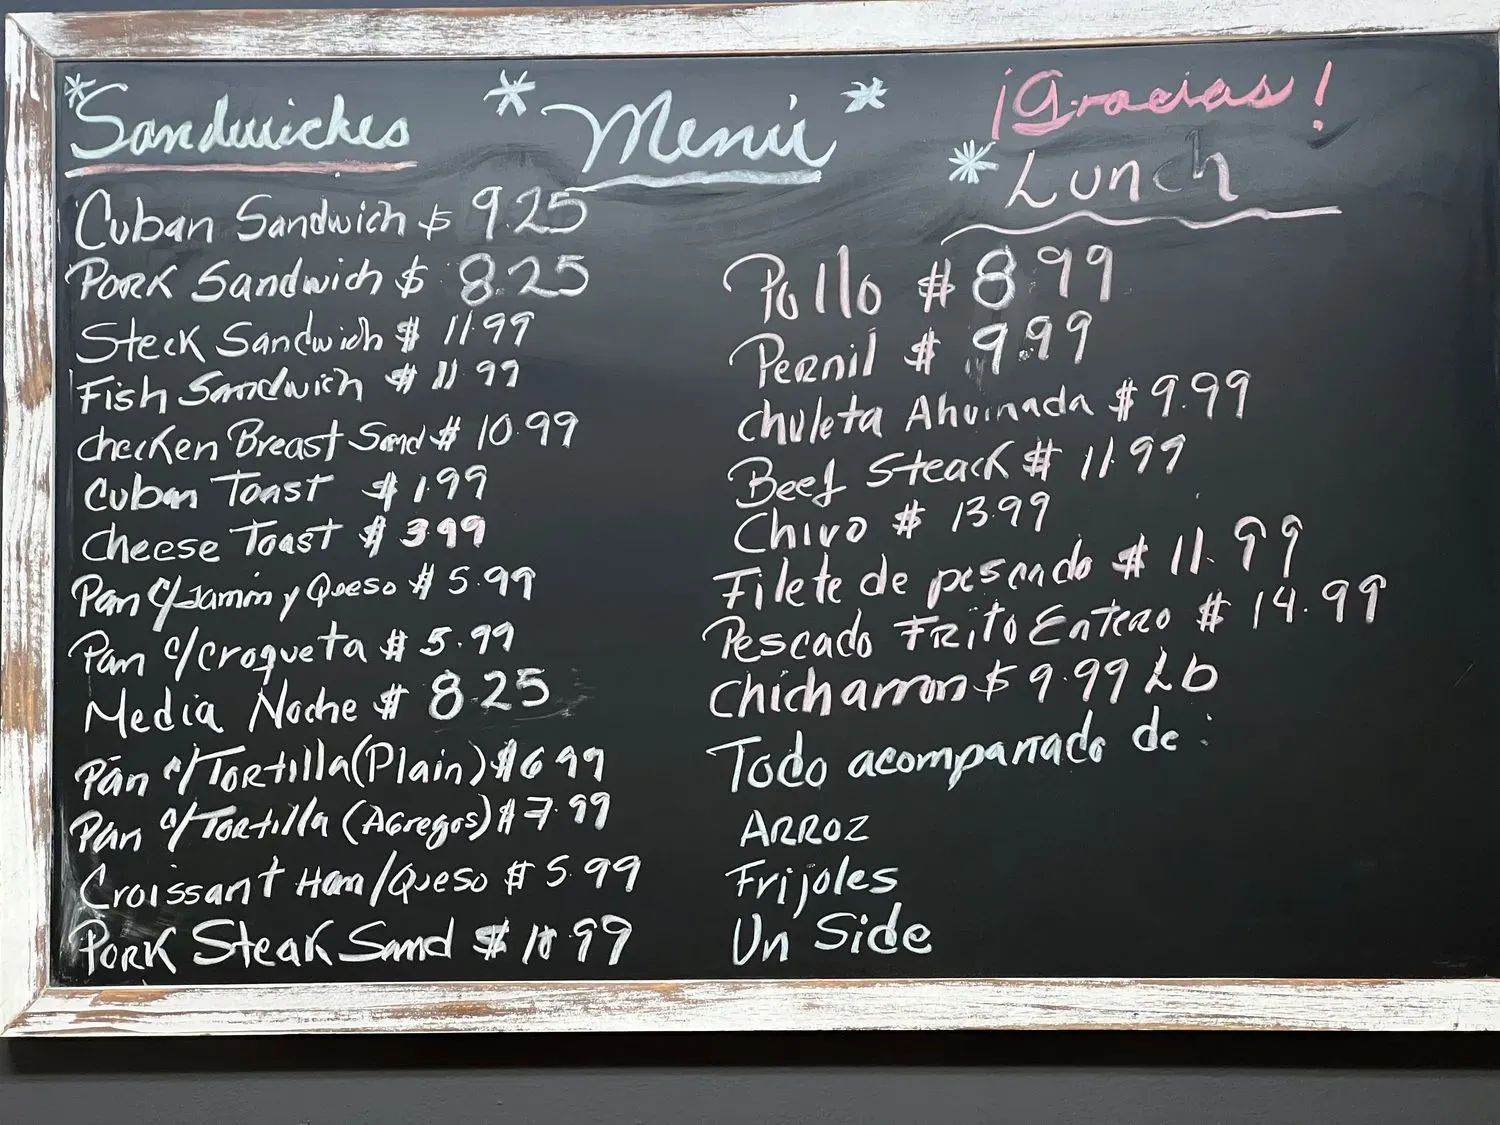 *Sandwiches
Cuban Sandwich $ 9.25
PORK Sandwich $ 8.25
Steck Sandwich $ 11.99
Fish Sandwich $ 11.99
checken Breast Sand $ 10.99
Cuban Toast $ 1.99
Cheese Toast $ 3.99
Pan c/Jamón y Queso $ 5.99
Pan c/croqueta $ 5.99
Media Noche $ 8.25
Pan c/Tortilla (Plain) $6.99
Pan c/Tortilla (Agregos) $7.99
Croissant Ham/Queso $ 5.99
PORK Steak Sand $ 99
* Menú *
¡Gracias!
* Lunch
Pollo $ 8.99
Pernil $ 9.99
chuleta Ahumada $ 9.99
Beef Steack $ 11.99
Chivo $ 13.99
Filete de pescado $ 11.99
Pescado Frito Entero $ 14.99
Chicharron $ 9.99 Lb
Todo acompañado de :
ARROZ
Frijoles
Un Side